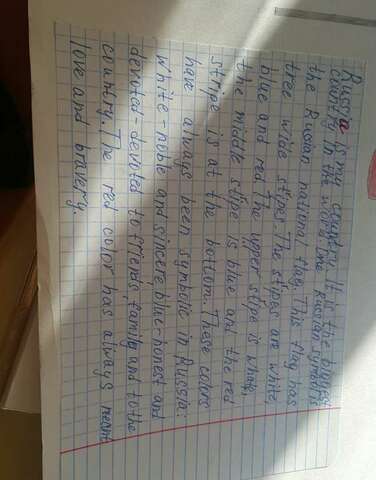 Russia is my country. It is the biggest
country in the world. The Russian symbol is
the Russian national flag. This flag has
tree wide stipes. The stipes are white,
blue and red. The upper stipe is white,
the middle stipe is blue and the red
stripe is at the bottom. These colors
have always been symbolic in Russia:
white-noble and sincere, blue-honest and
devoted-devoted to friends, family and to the
country. The red color has always meant
love and bravery.